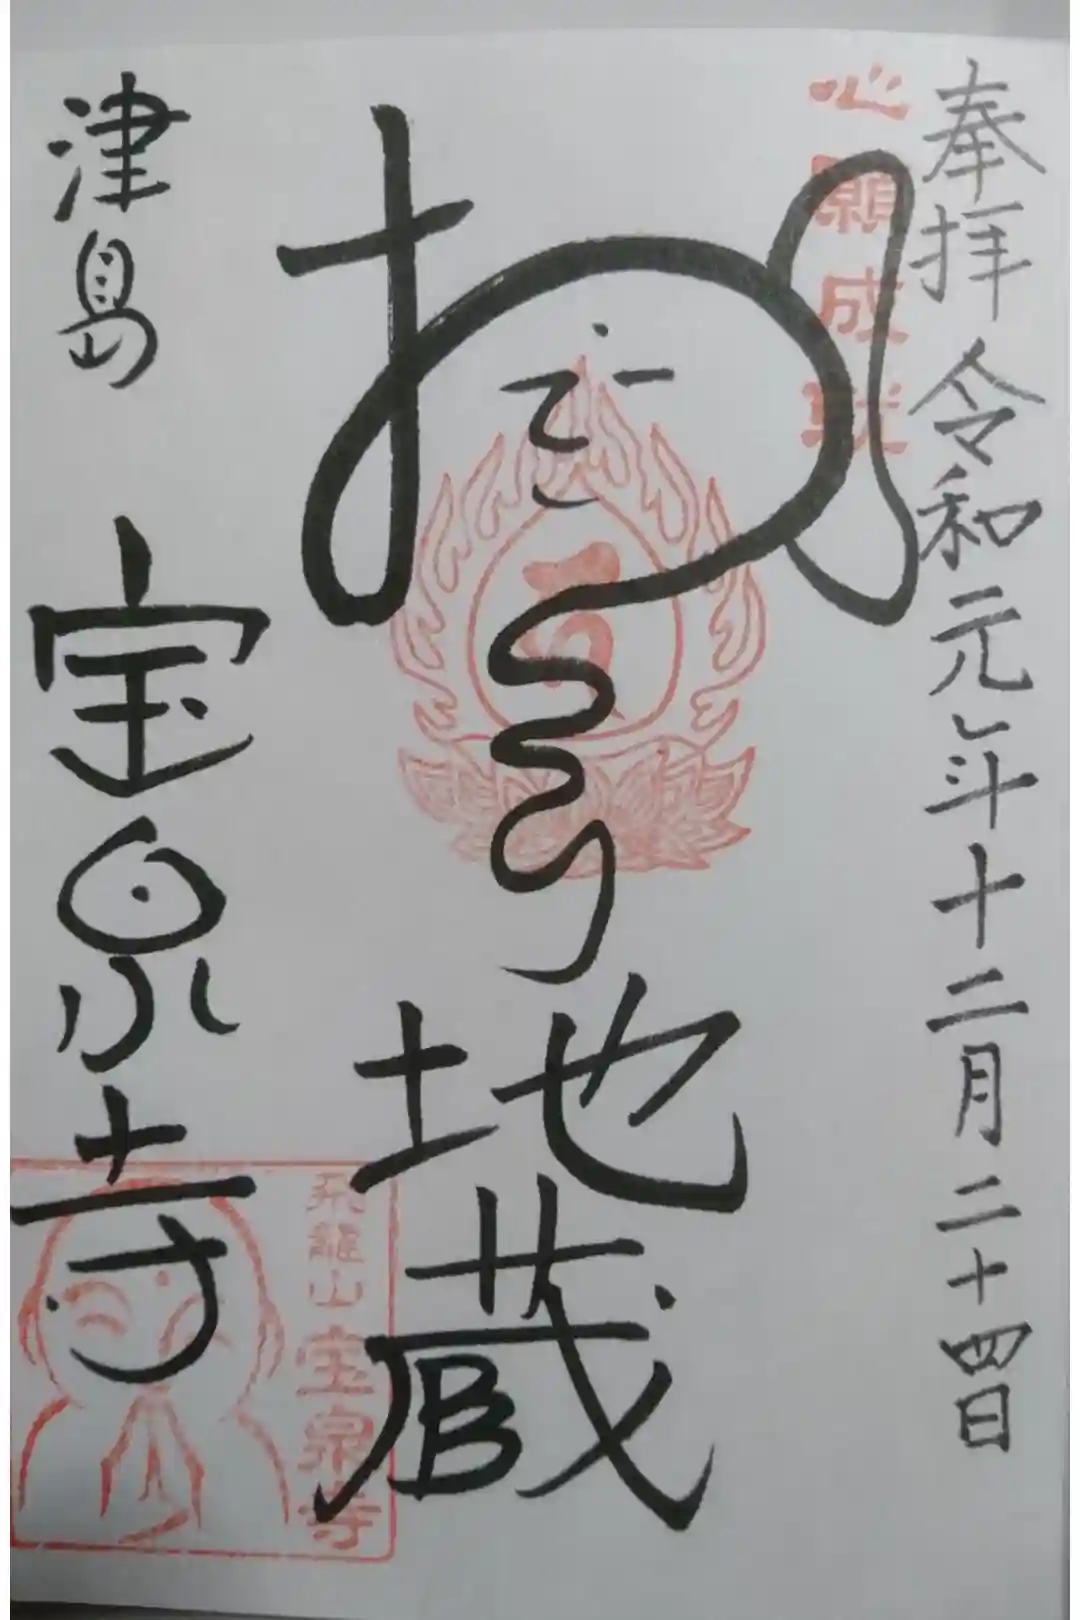 奉拝 令和元年十二月二十四日
心願成就
地蔵
津島 宝泉寺
飛龍山宝泉寺